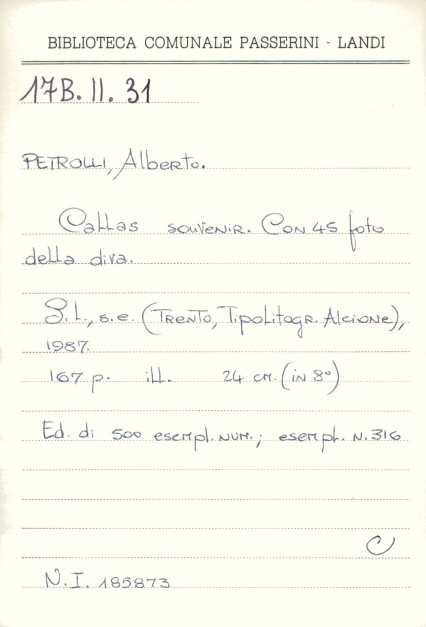 BIBLIOTECA COMUNALE PASSERINI - LANDI
17B. II. 31
PETROLLI, Alberto.
Callas souvenir. Con 45 foto
della diva.
S.l., s.e. (Trento, Tipolitogr. Alcione),
1987.
167 p. ill. 24 cm. (in 8°)
Ed. di 500 esempl. num.; esempl. N. 316
C
N.I. 185873